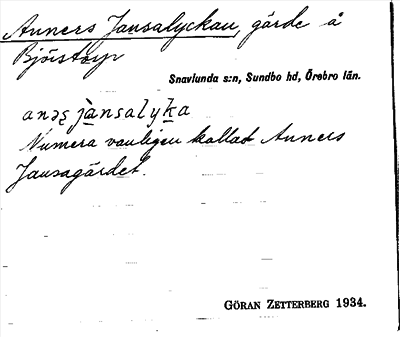 Anners Jansalyckan, gärde å
Björstorp
Snavlunda s:n, Sundbo hd, Örebro län.
anəʂ jànsalyka
Numera vanligen kallat Anners
Jansagärdet.
GÖRAN ZETTERBERG 1934.